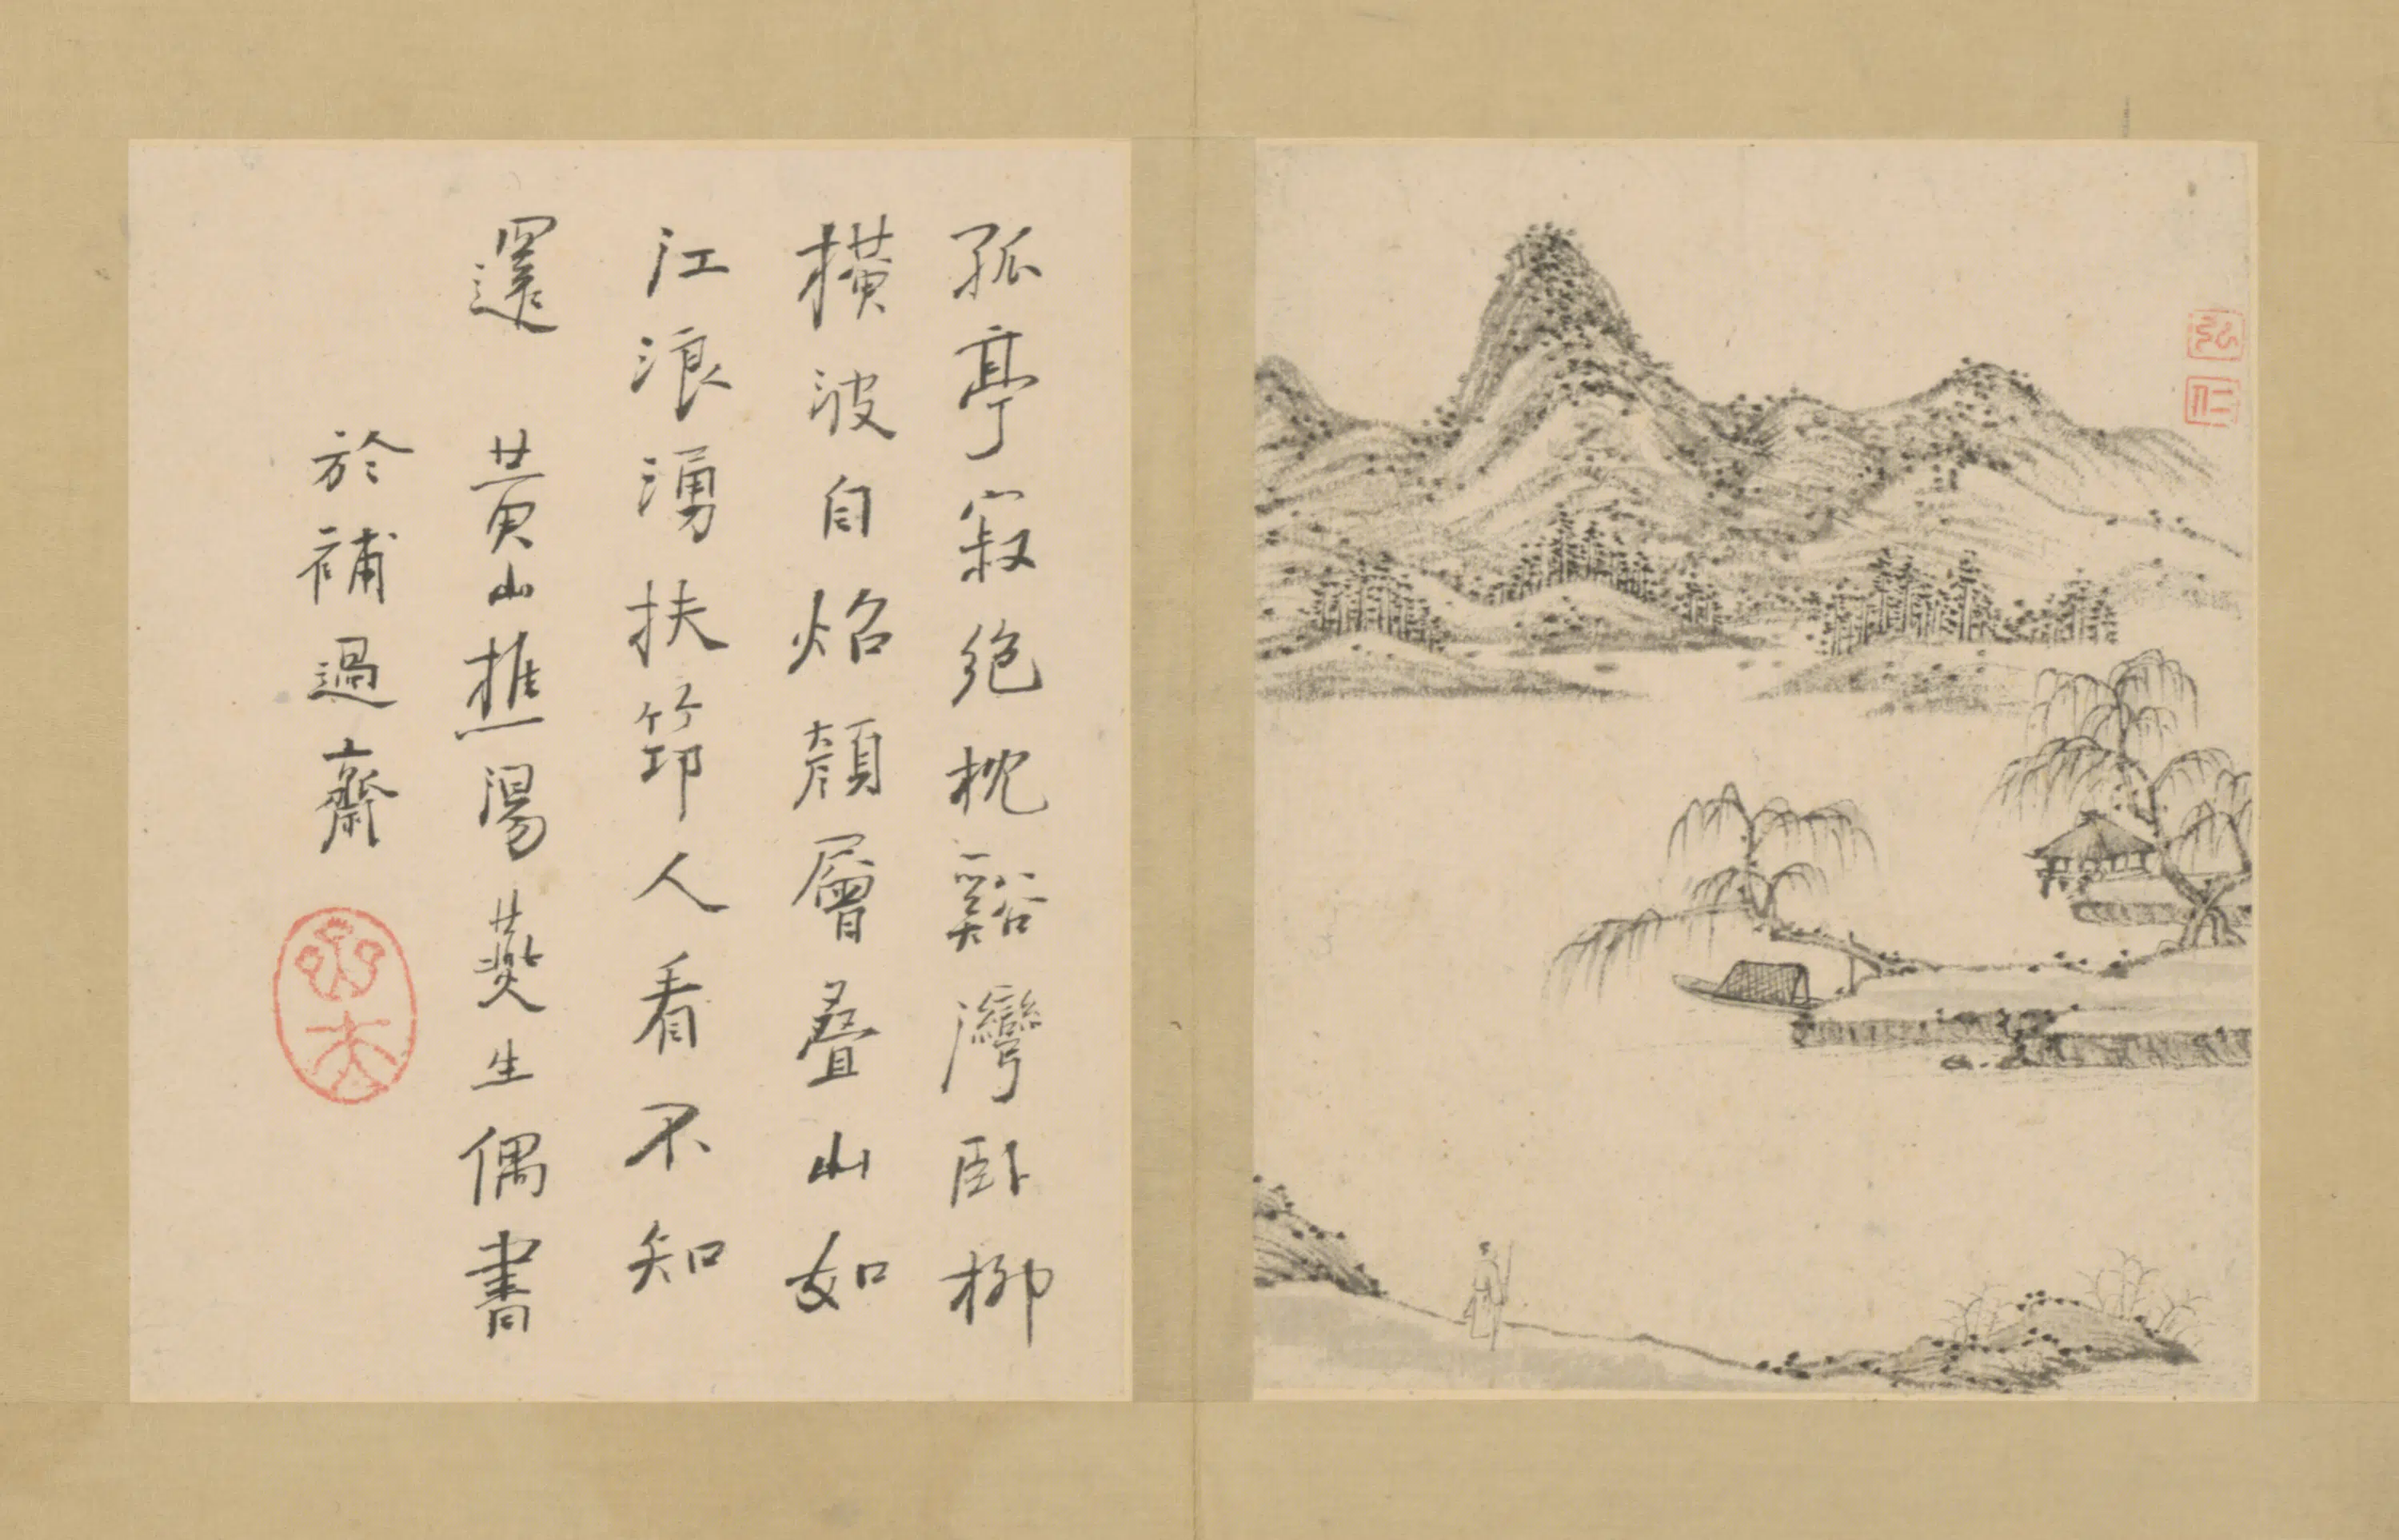 孤亭寂絶枕谿灣卧柳
橫波自炤顏層叠山如
江浪湧扶筇人看不知
還 黃山樵湯燕生偶書
於補過齋
弘
仁